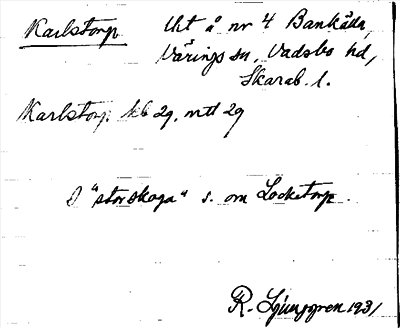 Karlstorp Utt å nr 4 Bankäln,
Värings sn, Vadsbo hd,
Skarab. l.
Karlstorp. kb 29. mtl 29
I "storskoga" s. om Locketorp.
R. Ljunggren 1931